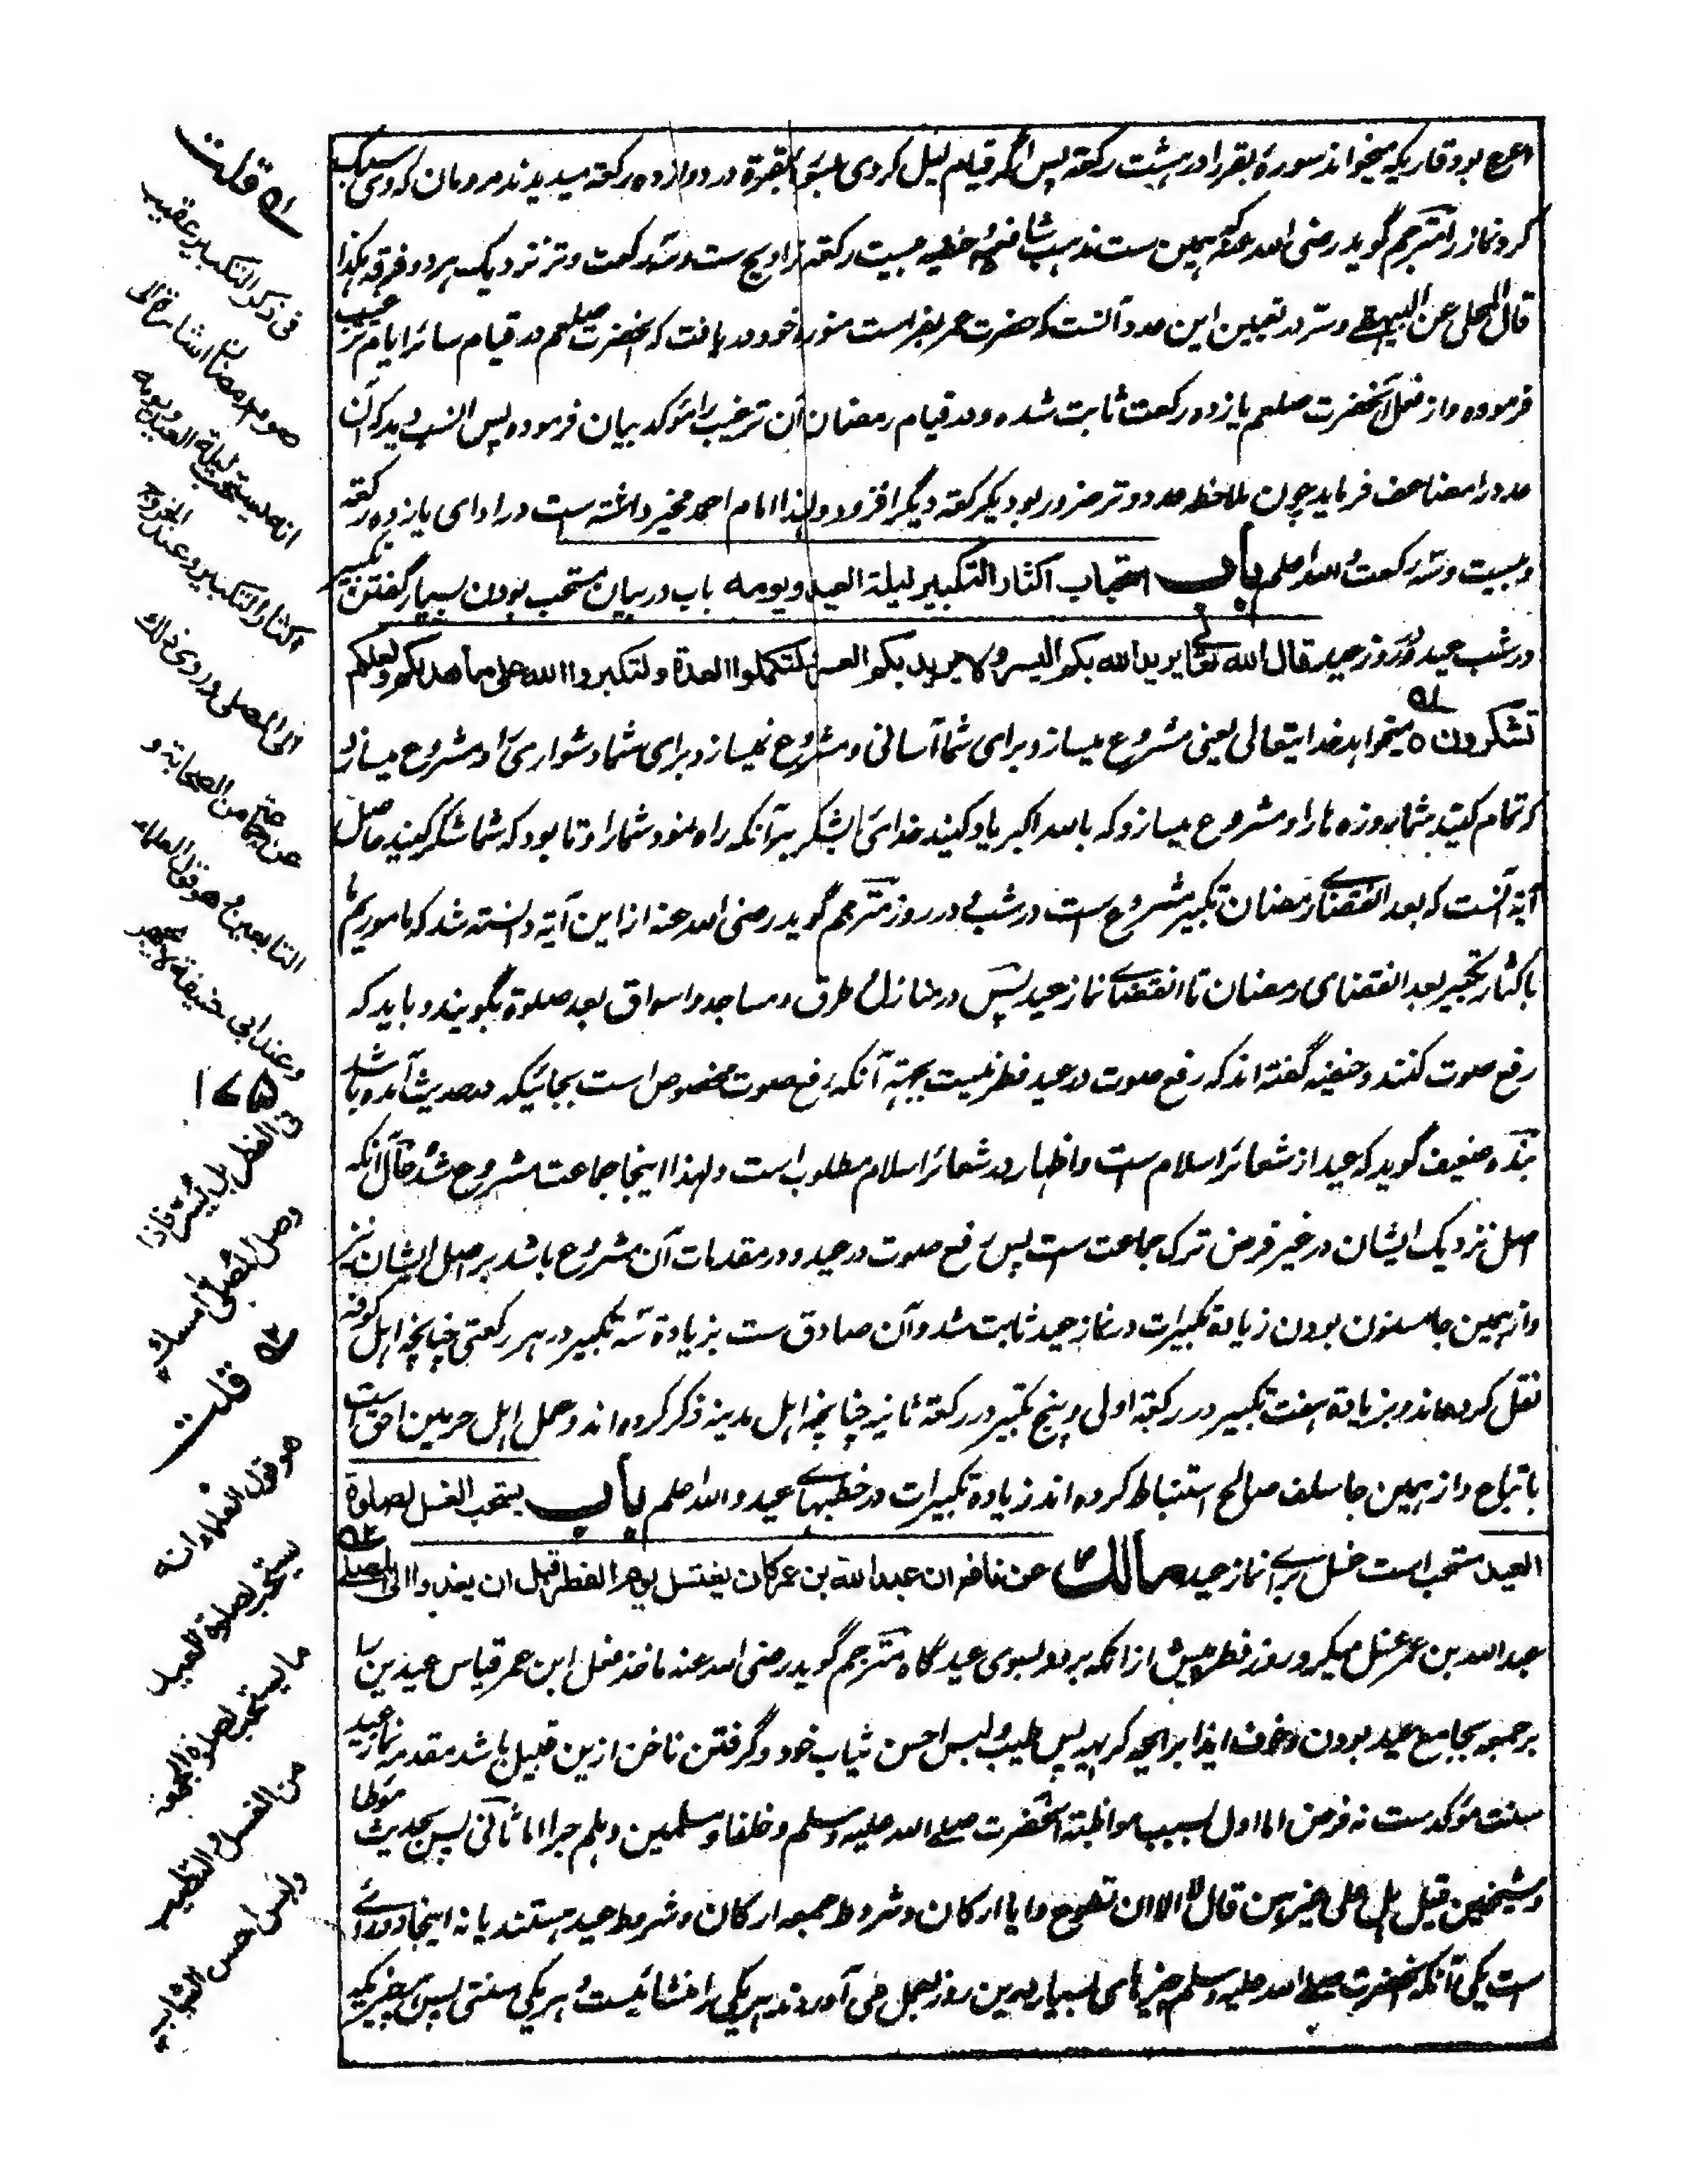 اعرج بود و قاریکه میخواند سورهٔ بقر را در هشت رکعة پس اگر قیام لیل کردی بسورة البقرة در دوازده رکعة میدیدند مردمان که وی سبک
کرد نماز را مترجم گوید رضی الله عنه همین ست مذهب شافعیه و حنفیه بیست رکعة تراویح ست و سه رکعت وتر نزدیک هر دو فرقه هکذا
قال المحلی عن البیهقی و سر در تعیین این عدد آنست که حضرت عمر بفراست منوره خود دریافت که آنحضرت صلعم در قیام سائر ایام ترغیب
فرموده و از فعل آنحضرت صلعم یازده رکعت ثابت شده و در قیام رمضان آن ترغیب را مؤکد بیان فرموده پس انسب دید که آن
عدد را مضاعف فرماید چون ملاحظه عدد وتر ضرور بود یکرکعة دیگر افزود و لهذا امام احمد مخیر داشته ست در ادای یازده رکعة
و بیست و سه رکعت والله اعلم باب استحباب اکثار التکبیر لیلة العید و یومه باب در بیان مستحب بودن بسیار گفتن تکبیر
در شب عید و روز عید قال الله تعالی یرید الله بکم الیسر ولا یرید بکم العسر ولتکملوا العدة ولتکبروا الله علی ما هدىکم ولعلکم
تشکرون ه میخواهد خدایتعالی یعنی مشروع میسازد برای شما آسانی و مشروع نمیسازد برای شما دشواری را و مشروع میسازد
که تمام کنید شمار روزه ها را و مشروع میسازد که بالله اکبر یاد کنید خدای را بشکر بر آنکه راه نمود شما را و تا بود که شما شکر کنید حاصل
آیة آنست که بعد انقضای رمضان تکبیر مشروع است در شب و در روز مترجم گوید رضی الله عنه از این آیة دانسته شد که ماموریم ما
باکثار تکبیر بعد انقضای رمضان تا انقضای نماز عید پس در منازل و طرق و مساجد و اسواق بعد صلوة بگویند و باید که
رفع صوت کنند و حنفیه گفته اند که رفع صوت در عید فطر نیست بجهة آنکه رفع صوت مخصوص است بجائیکه در حدیث آمده باشد
بنده ضعیف گوید که عید از شعائر اسلام ست و اظهار در شعائر اسلام مطلوب است و لهذا اینجا جماعت مشروع شد حال آنکه
اصل نزدیک ایشان در غیر فرض ترک جماعت ست پس رفع صوت در عید و در مقدمات آن مشروع باشد بر اصل ایشان نیز
و از همین جا مسنون بودن زیادة تکبیرات در نماز عید ثابت شد و آن صادق ست بزیادة سه تکبیر در هر رکعتی چنانچه اهل کوفه
نقل کرده اند و بزیادة هفت تکبیر در رکعة اولی و پنج تکبیر در رکعة ثانیه چنانچه اهل مدینه ذکر کرده اند و عمل اهل حرمین احق است
باتباع و از همین جا سلف صالح استنباط کرده اند زیادة تکبیرات در خطبهای عید والله اعلم باب یستحب الغسل لصلوة
العید مستحب است غسل برای نماز عید مالک عن نافع ان عبدالله بن عمر کان یغتسل یوم الفطر قبل ان یغدوا الی المصلی
عبدالله بن عمر غسل میکرد روز فطر پیش از انکه برود بسوی عیدگاه مترجم گوید رضی الله عنه ماخذ فعل ابن عمر قیاس عیدین ست
بر جمعه بجامع عید بودن و خوف ایذا برائحه کریهه پس طیب و لبس احسن ثیاب خود و گرفتن ناخن ازین قبیل باشد مقدمه نماز عید
سنت مؤکد ست نه فرض اما اول بسبب مواظبة آنحضرت صلی الله علیه وسلم و خلفا و مسلمین و هلم جرا اما ثانی پس بحدیث موطا
و شیخین قیل هل علی غیرهن قال لا الا ان تطوع و ایا ارکان و شروط جمعه ارکان و شروط عید هستند یا نه اینجا دو رای
است یکی آنکه آنحضرت صلی الله علیه وسلم چیزهای بسیار درین روز بعمل می آوردند هر یکی را منشائیست و هر یکی سنتی پس چیزیکه
قلت
فی ذکر التکبیر عقیب
صوم رمضان اشارة الی
انه یستحب لیلة العید و یومه
اکثار التکبیر و عند الخروج
الی المصلی و روی ذلک
عن جماعة من الصحابة و
التابعین و هو قول العلماء
و عند ابی حنیفة لا یجهر
۱۷۵
فی الفطر بل یسره فاذا
وصل المصلی امسک
قلت
هو قول العلماء انه
یستحب لصلوة العید
ما یستحب لصلوة الجمعة
من الغسل و التطیب
و لبس احسن الثیاب